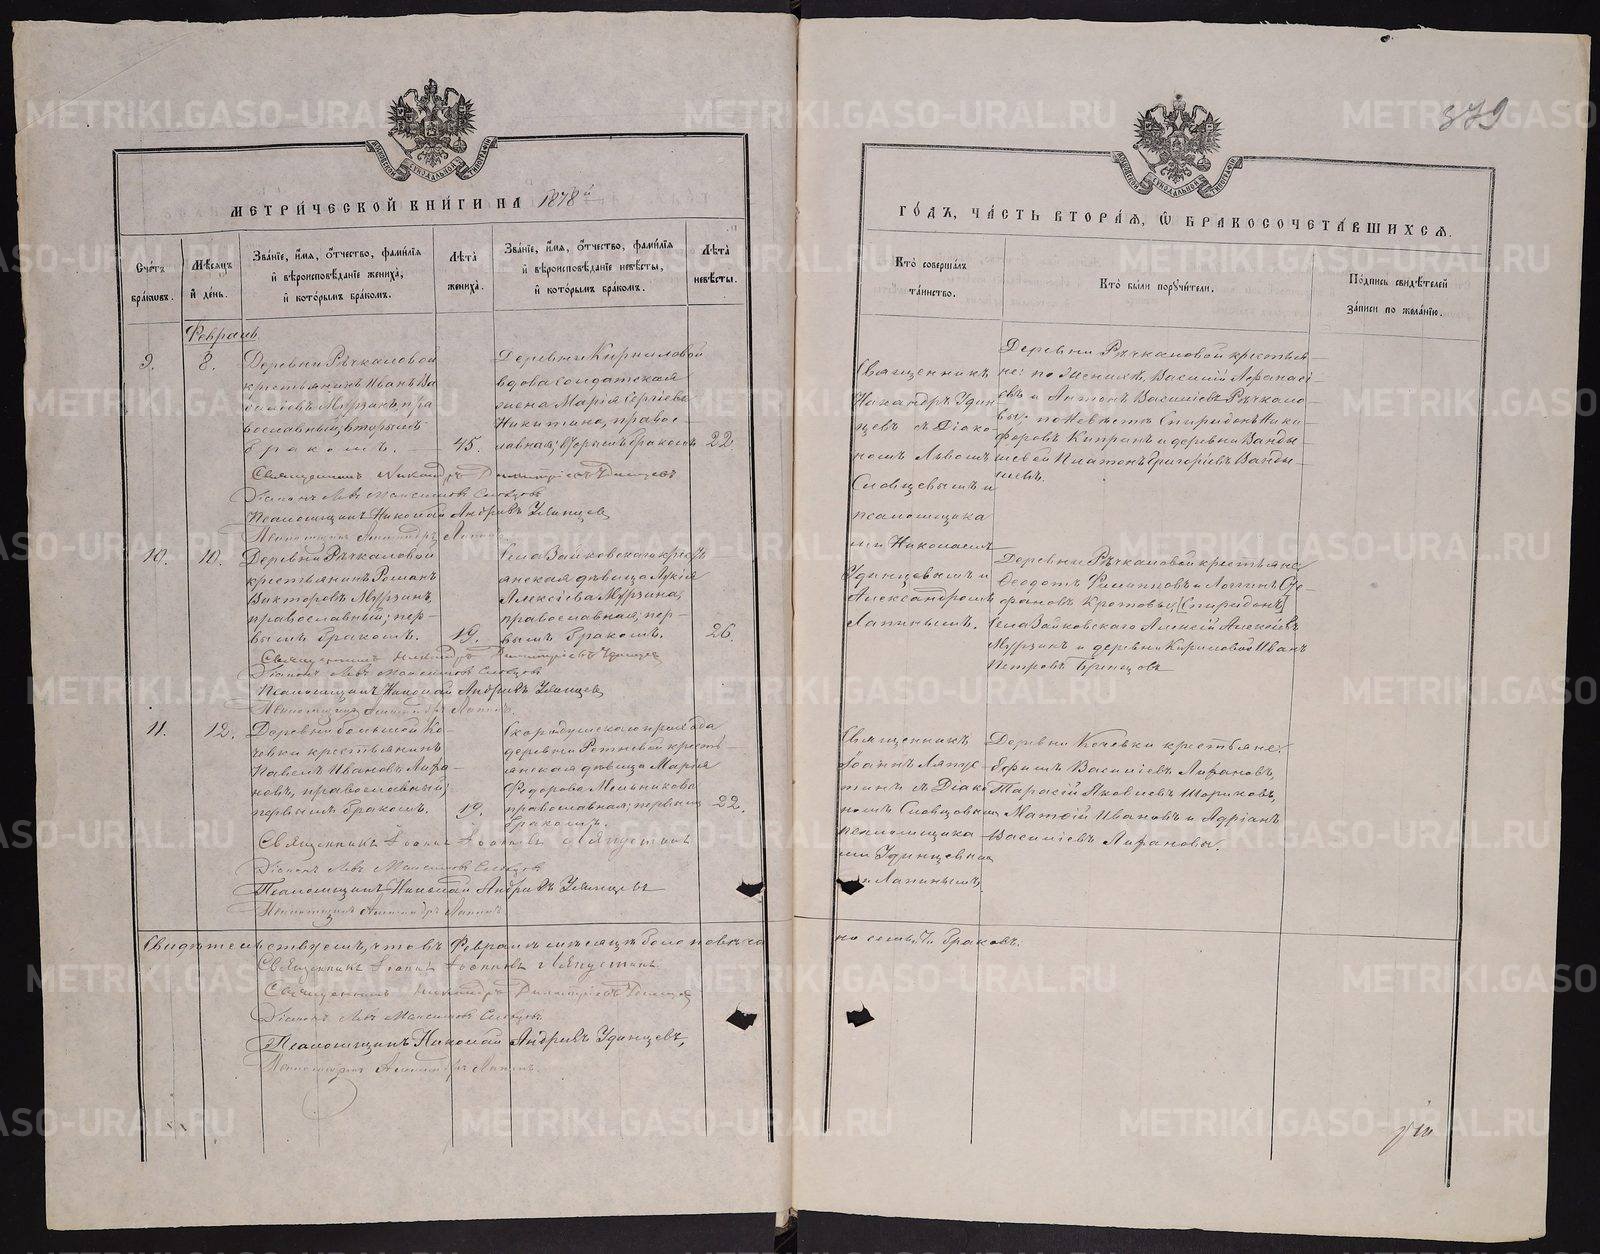 379
МЕТРИЧЕСКОЙ КНИГИ НА 1878й
ГОДЪ, ЧАСТЬ ВТОРАЯ, Ѡ БРАКОСОЧЕТАВШИХСЯ.
Счетъ браковъ.
Мѣсяцъ и день.
Званіе, имя, отчество, фамилія
и вѣроисповѣданіе жениха,
и которымъ бракомъ.
Лѣта
жениха.
Званіе, имя, отчество, фамилія
и вѣроисповѣданіе невѣсты,
и которымъ бракомъ.
Лѣта
невѣсты.
Кто совершалъ
таинство.
Кто были поручители.
Подпись свидѣтелей
записи по желанію.
Февраль
9. 8.
Деревни Рѣчкаловой
крестьянинъ Иванъ Ва
силіевъ Мурзинъ, пра
вославный, вторымъ
бракомъ. 45.
Деревни Кириловой
вдова солдатская
жена Марія Сергіева
Никитина, правос-
лавная; вторымъ бракомъ 22.
Священникъ
Никандръ Удин
цевъ съ Діако
номъ Львомъ
Словцевымъ и
псаломщика
ми Николаемъ
Удинцевымъ и
Александромъ
Лапинымъ.
Деревни Рѣчкаловой крестья-
не: по женихѣ, Василій Афанасі-
евъ и Антонъ Василіевъ Рѣчкало-
вы; по невѣстѣ Спиридонъ Ники
форовъ Кипринъ и деревни Ванды
шевой Платонъ Григорьевъ Ванды-
шевъ.
Священникъ Никандръ Димитріевъ Удинцевъ
Діаконъ Левъ Максимовъ Словцовъ
Псаломщикъ Николай Андріевъ Удинцевъ
Псаломщикъ Александръ Лапинъ
10. 10.
Деревни Рѣчкаловой
крестьянинъ Романъ
Викторовъ Мурзинъ,
православный; пер-
вымъ бракомъ. 19.
Села Зайковскаго кресть
янская дѣвица Лукія
Алексіева Мурзина,
православная; пер-
вымъ бракомъ. 26.
Деревни Рѣчкаловой крестьяне
Ѳеодотъ Филипповъ и Логгинъ Сте
фановъ Кротовы, [Спиридонъ]
Села Зайковскаго Алексій Алексіевъ
Мурзинъ и деревни Кириловой Иванъ
Петровъ Бринцовъ
Священникъ Никандръ Димитріевъ Удинцевъ
Діаконъ Левъ Максимовъ Словцовъ
Псаломщикъ Николай Андріевъ Удинцевъ
Псаломщикъ Александръ Лапинъ
11. 12.
Деревни большой Ко
чевки крестьянинъ
Павелъ Ивановъ Лифа-
новъ, православный;
первымъ бракомъ. 19.
Скородумскаго прихода
деревни Ретневой кресть-
янская дѣвица Марія
Ѳедорова Мельникова
православная; первымъ
бракомъ. 22.
Священникъ
Іоаннъ Ляпус
тинъ съ Діако
номъ Словцовымъ
псаломщика
ми Удинцевымъ
и Лапинымъ.
Деревни Кочевки крестьяне:
Ефимъ Василіевъ Лифановъ,
Тарасій Яковлевъ Шориковъ,
Матѳій Ивановъ и Адріанъ
Василіевъ Лифановы.
Священникъ Іоаннъ Іоанновъ Ляпустинъ
Діаконъ Левъ Максимовъ Словцовъ
Псаломщикъ Николай Андріевъ Удинцевъ
Псаломщикъ Александръ Лапинъ
Свидѣтельствуемъ, что въ Февралѣ мѣсяцѣ болѣ повѣнча но семь 7. браковъ.
Священникъ Іоаннъ Іоанновъ Ляпустинъ
Священникъ Никандръ Димитріевъ Удинцевъ
Діаконъ Левъ Максимовъ Словцовъ
Псаломщикъ Николай Андріевъ Удинцевъ,
Псаломщикъ Александръ Лапинъ.
METRIKI.GASO-URAL.RU